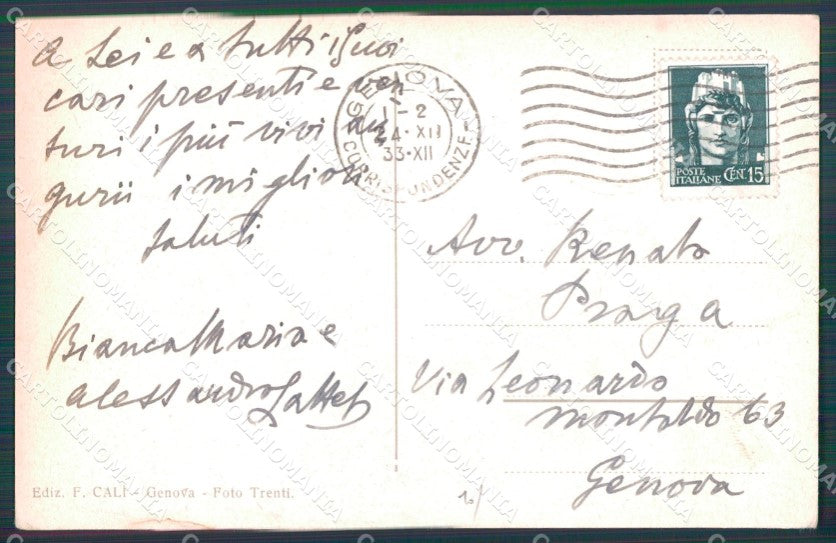 A Lei e a tutti i suoi
cari presenti e ven
turi i più vivi au
gurii i migliori
saluti
Bianca Maria e
Alessandro
Ediz. F. CALÌ - Genova - Foto Trenti.
GENOVA
1-2
24·XII
33·XII
CORRISPONDENZE
POSTE
ITALIANE CEN. 15
Avv. Renato
Praga
Via Leonardo
Montaldo 63
Genova
CARTOLINOMANIA